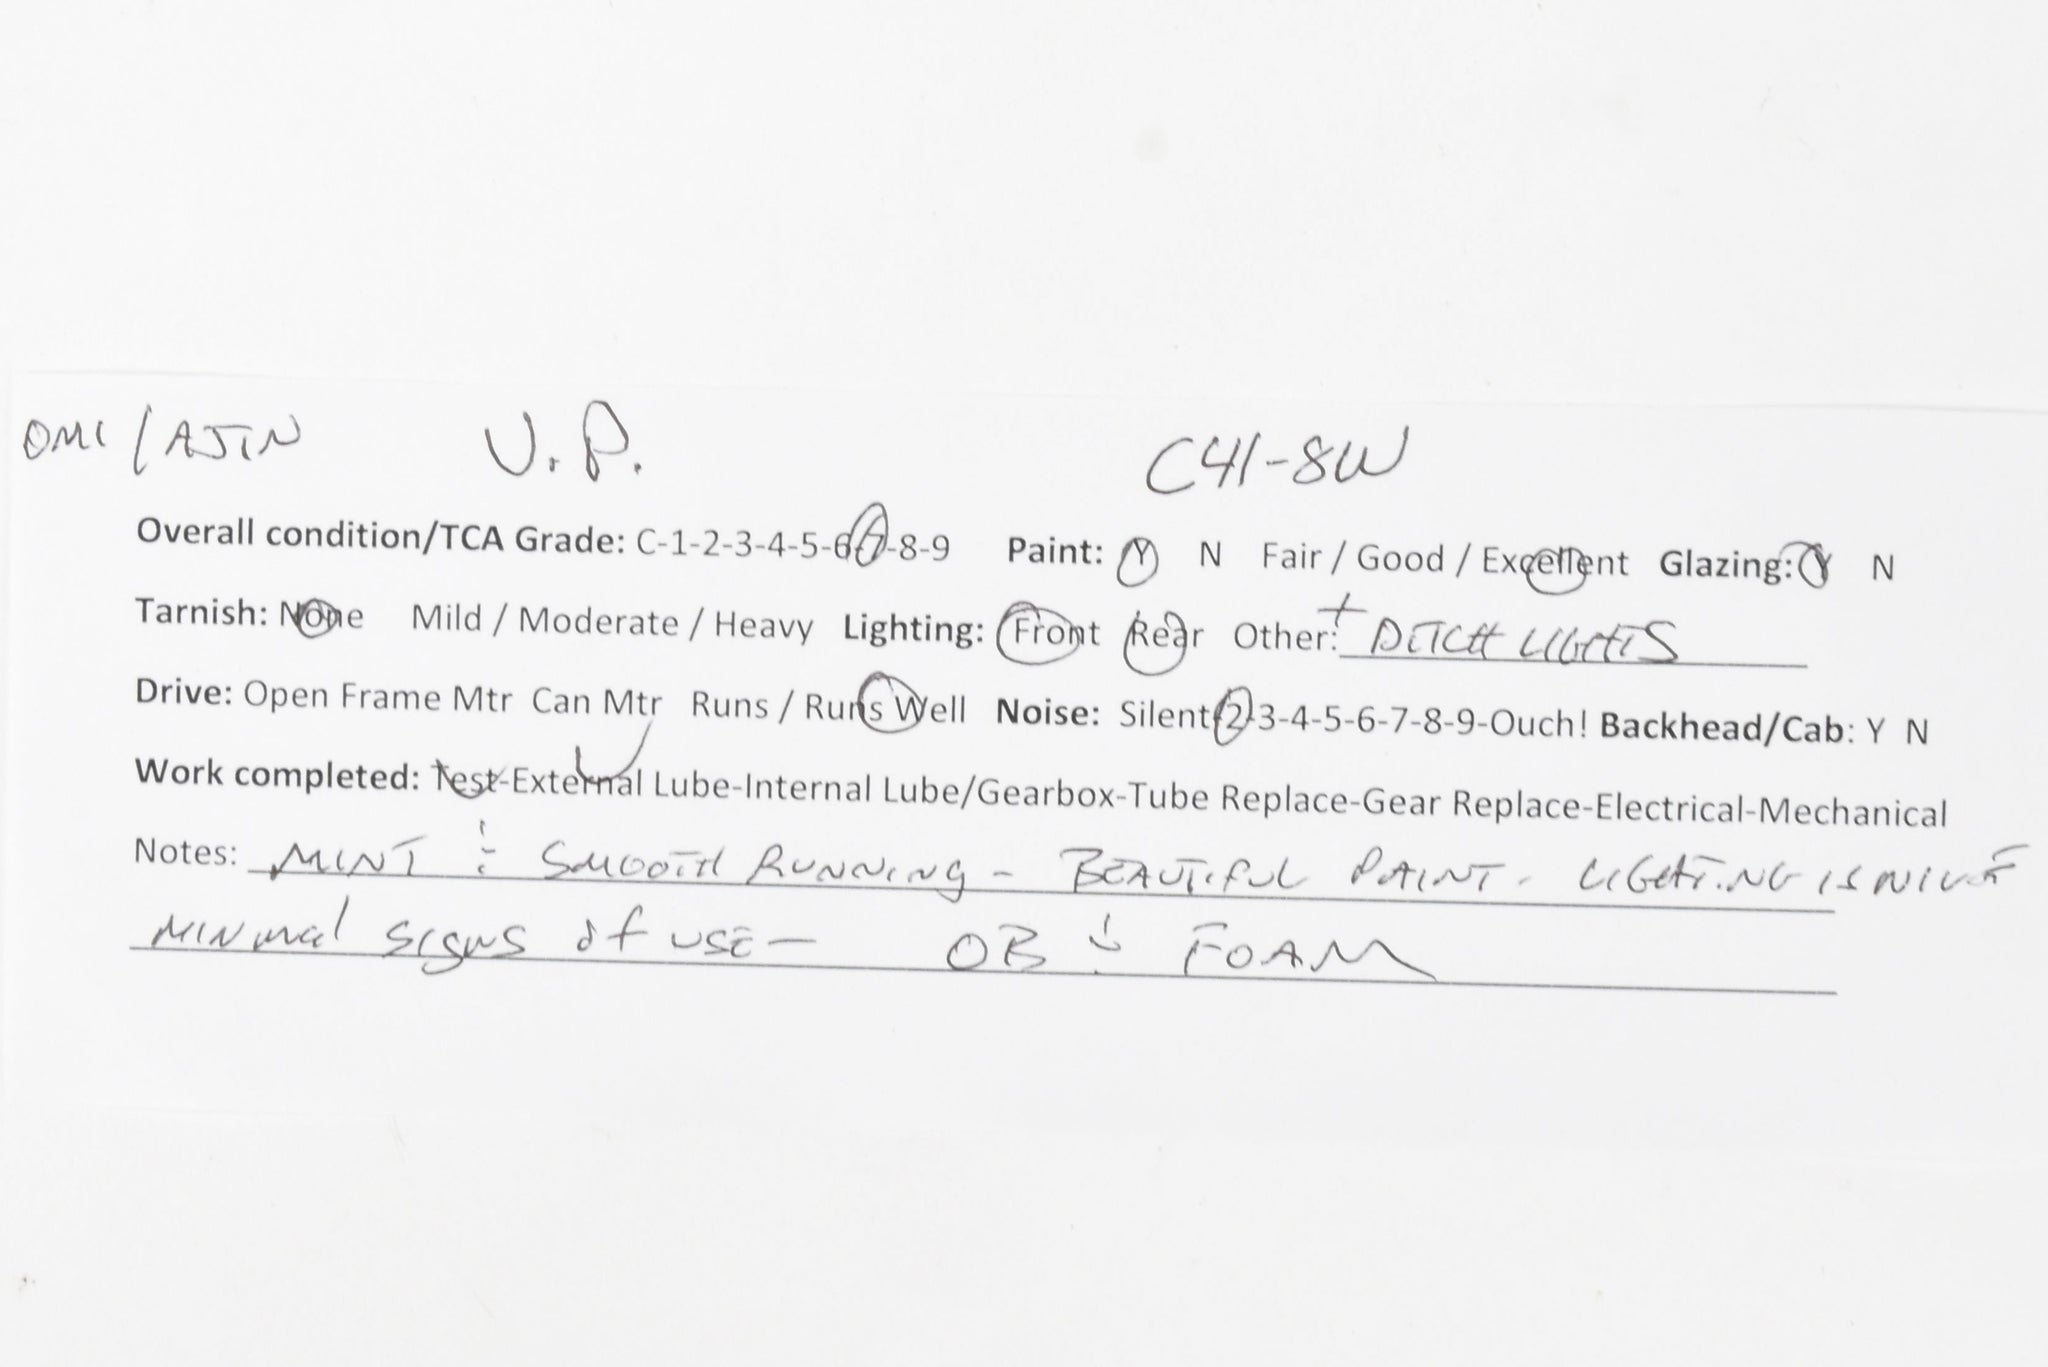 OMI / AJIN U.P. C41-8W
Overall condition/TCA Grade: C-1-2-3-4-5-6-7-8-9 Paint: Y N Fair / Good / Excellent Glazing: Y N
Tarnish: None Mild / Moderate / Heavy Lighting: Front Rear Other: + DITCH LIGHTS
Drive: Open Frame Mtr Can Mtr Runs / Runs Well Noise: Silent-2-3-4-5-6-7-8-9-Ouch! Backhead/Cab: Y N
Work completed: Test-External Lube-Internal Lube/Gearbox-Tube Replace-Gear Replace-Electrical-Mechanical
Notes: MINT & SMOOTH RUNNING - BEAUTIFUL PAINT. LIGHTING IS NICE
MINIMAL SIGNS OF USE - OB & FOAM